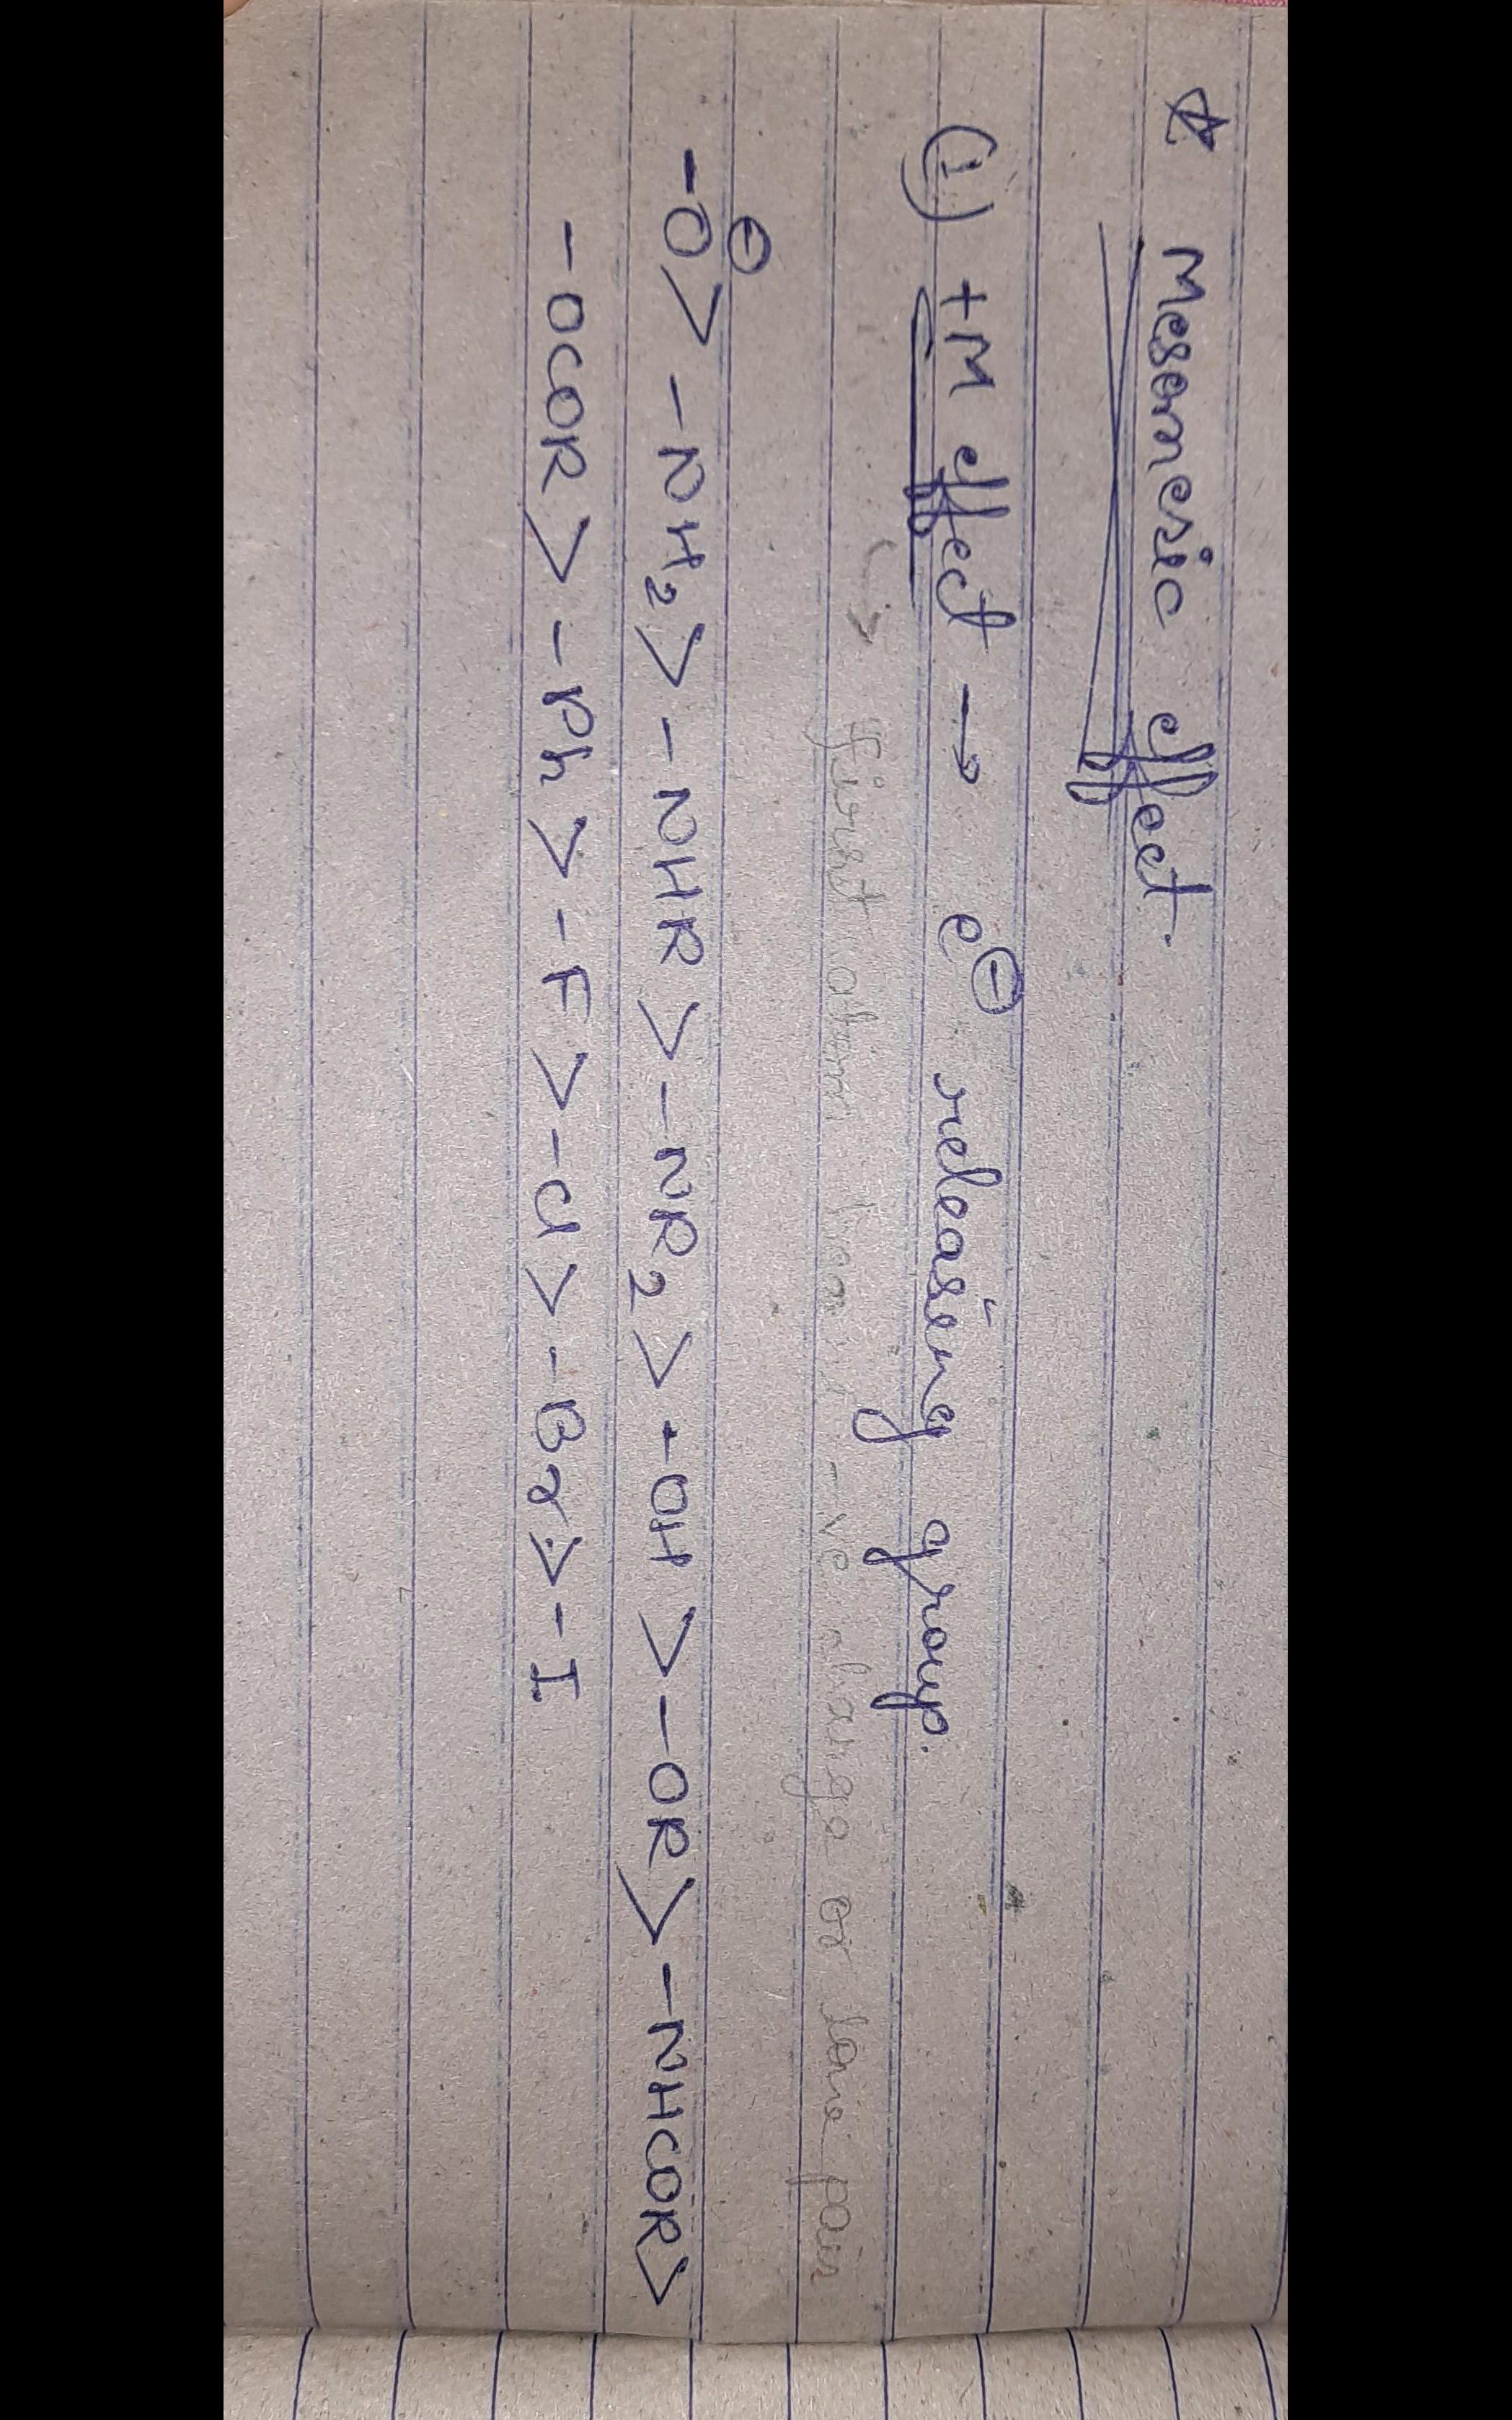 ☆ Mesomeric effect.
(1) +M effect → e⊖ releasing group.
↳ first atom has -ve charge or lone pair
-O⊖ > -NH₂ > -NHR > -NR₂ > -OH > -OR > -NHCOR >
-OCOR > -Ph > -F > -Cl > -Br > -I